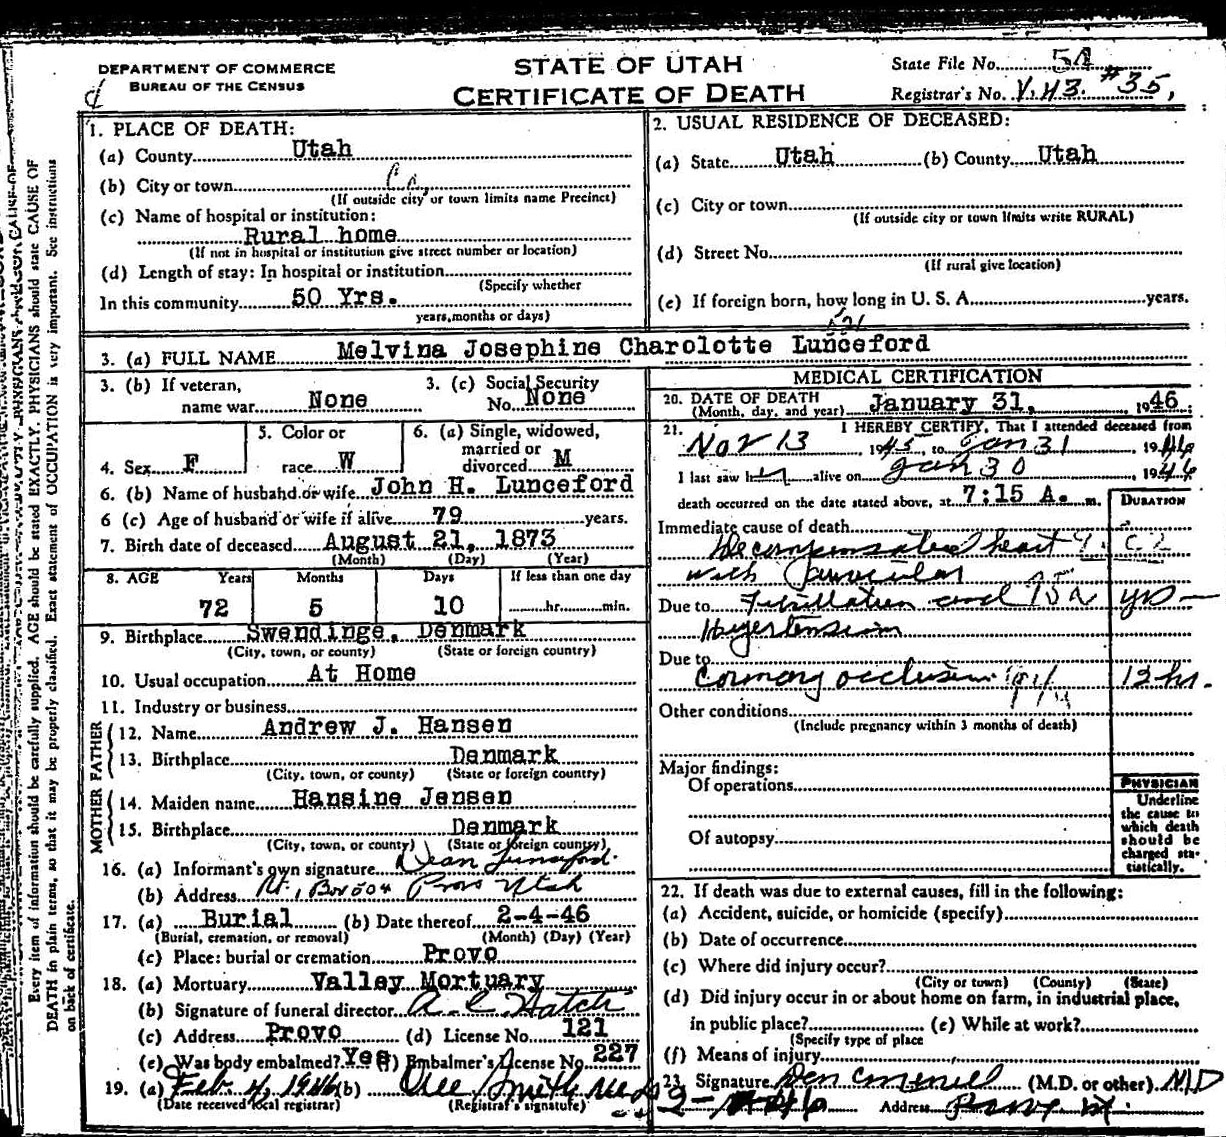 DEPARTMENT OF COMMERCE
BUREAU OF THE CENSUS
STATE OF UTAH
CERTIFICATE OF DEATH
State File No. 54
Registrar's No. V.43. #35,
Every item of information should be carefully supplied. AGE should be stated EXACTLY. PHYSICIANS should state CAUSE OF
DEATH in plain terms, so that it may be properly classified. Exact statement of OCCUPATION is very important. See instructions
on back of certificate.
1. PLACE OF DEATH:
(a) County Utah
(b) City or town Co.
(If outside city or town limits name Precinct)
(c) Name of hospital or institution:
Rural home
(If not in hospital or institution give street number or location)
(d) Length of stay: In hospital or institution
(Specify whether
In this community 50 Yrs.
years, months or days)
2. USUAL RESIDENCE OF DECEASED:
(a) State Utah (b) County Utah
(c) City or town
(If outside city or town limits write RURAL)
(d) Street No.
(If rural give location)
(e) If foreign born, how long in U. S. A. years.
3. (a) FULL NAME Melvina Josephine Charolotte Lunceford
3. (b) If veteran,
name war None
3. (c) Social Security
No. None
4. Sex F
5. Color or
race W
6. (a) Single, widowed,
married or
divorced M
6. (b) Name of husband or wife John H. Lunceford
6 (c) Age of husband or wife if alive 79 years.
7. Birth date of deceased August 21, 1873
(Month) (Day) (Year)
8. AGE Years Months Days If less than one day
72 5 10 hr. min.
9. Birthplace Swendinge, Denmark
(City, town, or county) (State or foreign country)
10. Usual occupation At Home
11. Industry or business
FATHER
12. Name Andrew J. Hansen
13. Birthplace Denmark
(City, town, or county) (State or foreign country)
MOTHER
14. Maiden name Hansine Jensen
15. Birthplace Denmark
(City, town, or county) (State or foreign country)
16. (a) Informant's own signature Dean Lunceford.
(b) Address Rt, Box 504 Provo Utah
17. (a) Burial (b) Date thereof 2-4-46
(Burial, cremation, or removal) (Month) (Day) (Year)
(c) Place: burial or cremation Provo
18. (a) Mortuary Valley Mortuary
(b) Signature of funeral director A. C. Hatch
(c) Address Provo (d) License No. 121
(e) Was body embalmed? Yes (f) Embalmer's License No. 227
19. (a) Feb. 4, 1946 (b) Smith
(Date received local registrar) (Registrar's signature)
MEDICAL CERTIFICATION
20. DATE OF DEATH
(Month, day, and year) January 31, 1946.
21. I HEREBY CERTIFY, That I attended deceased from
Nov 13, 1945, to Jan 31 1946
I last saw her alive on Jan 30 1946
death occurred on the date stated above, at 7:15 A. m.
DURATION
Immediate cause of death
Decompensated heart
with auricular
Due to fibrillation and yrs
Hypertension
Due to
Coronary occlusion 12 hr.
Other conditions
(Include pregnancy within 3 months of death)
Major findings:
Of operations
Of autopsy
PHYSICIAN
Underline
the cause to
which death
should be
charged sta-
tistically.
22. If death was due to external causes, fill in the following:
(a) Accident, suicide, or homicide (specify)
(b) Date of occurrence
(c) Where did injury occur?
(City or town) (County) (State)
(d) Did injury occur in or about home on farm, in industrial place,
in public place? (e) While at work?
(Specify type of place
(f) Means of injury
23. Signature (M.D. or other) MD
Address